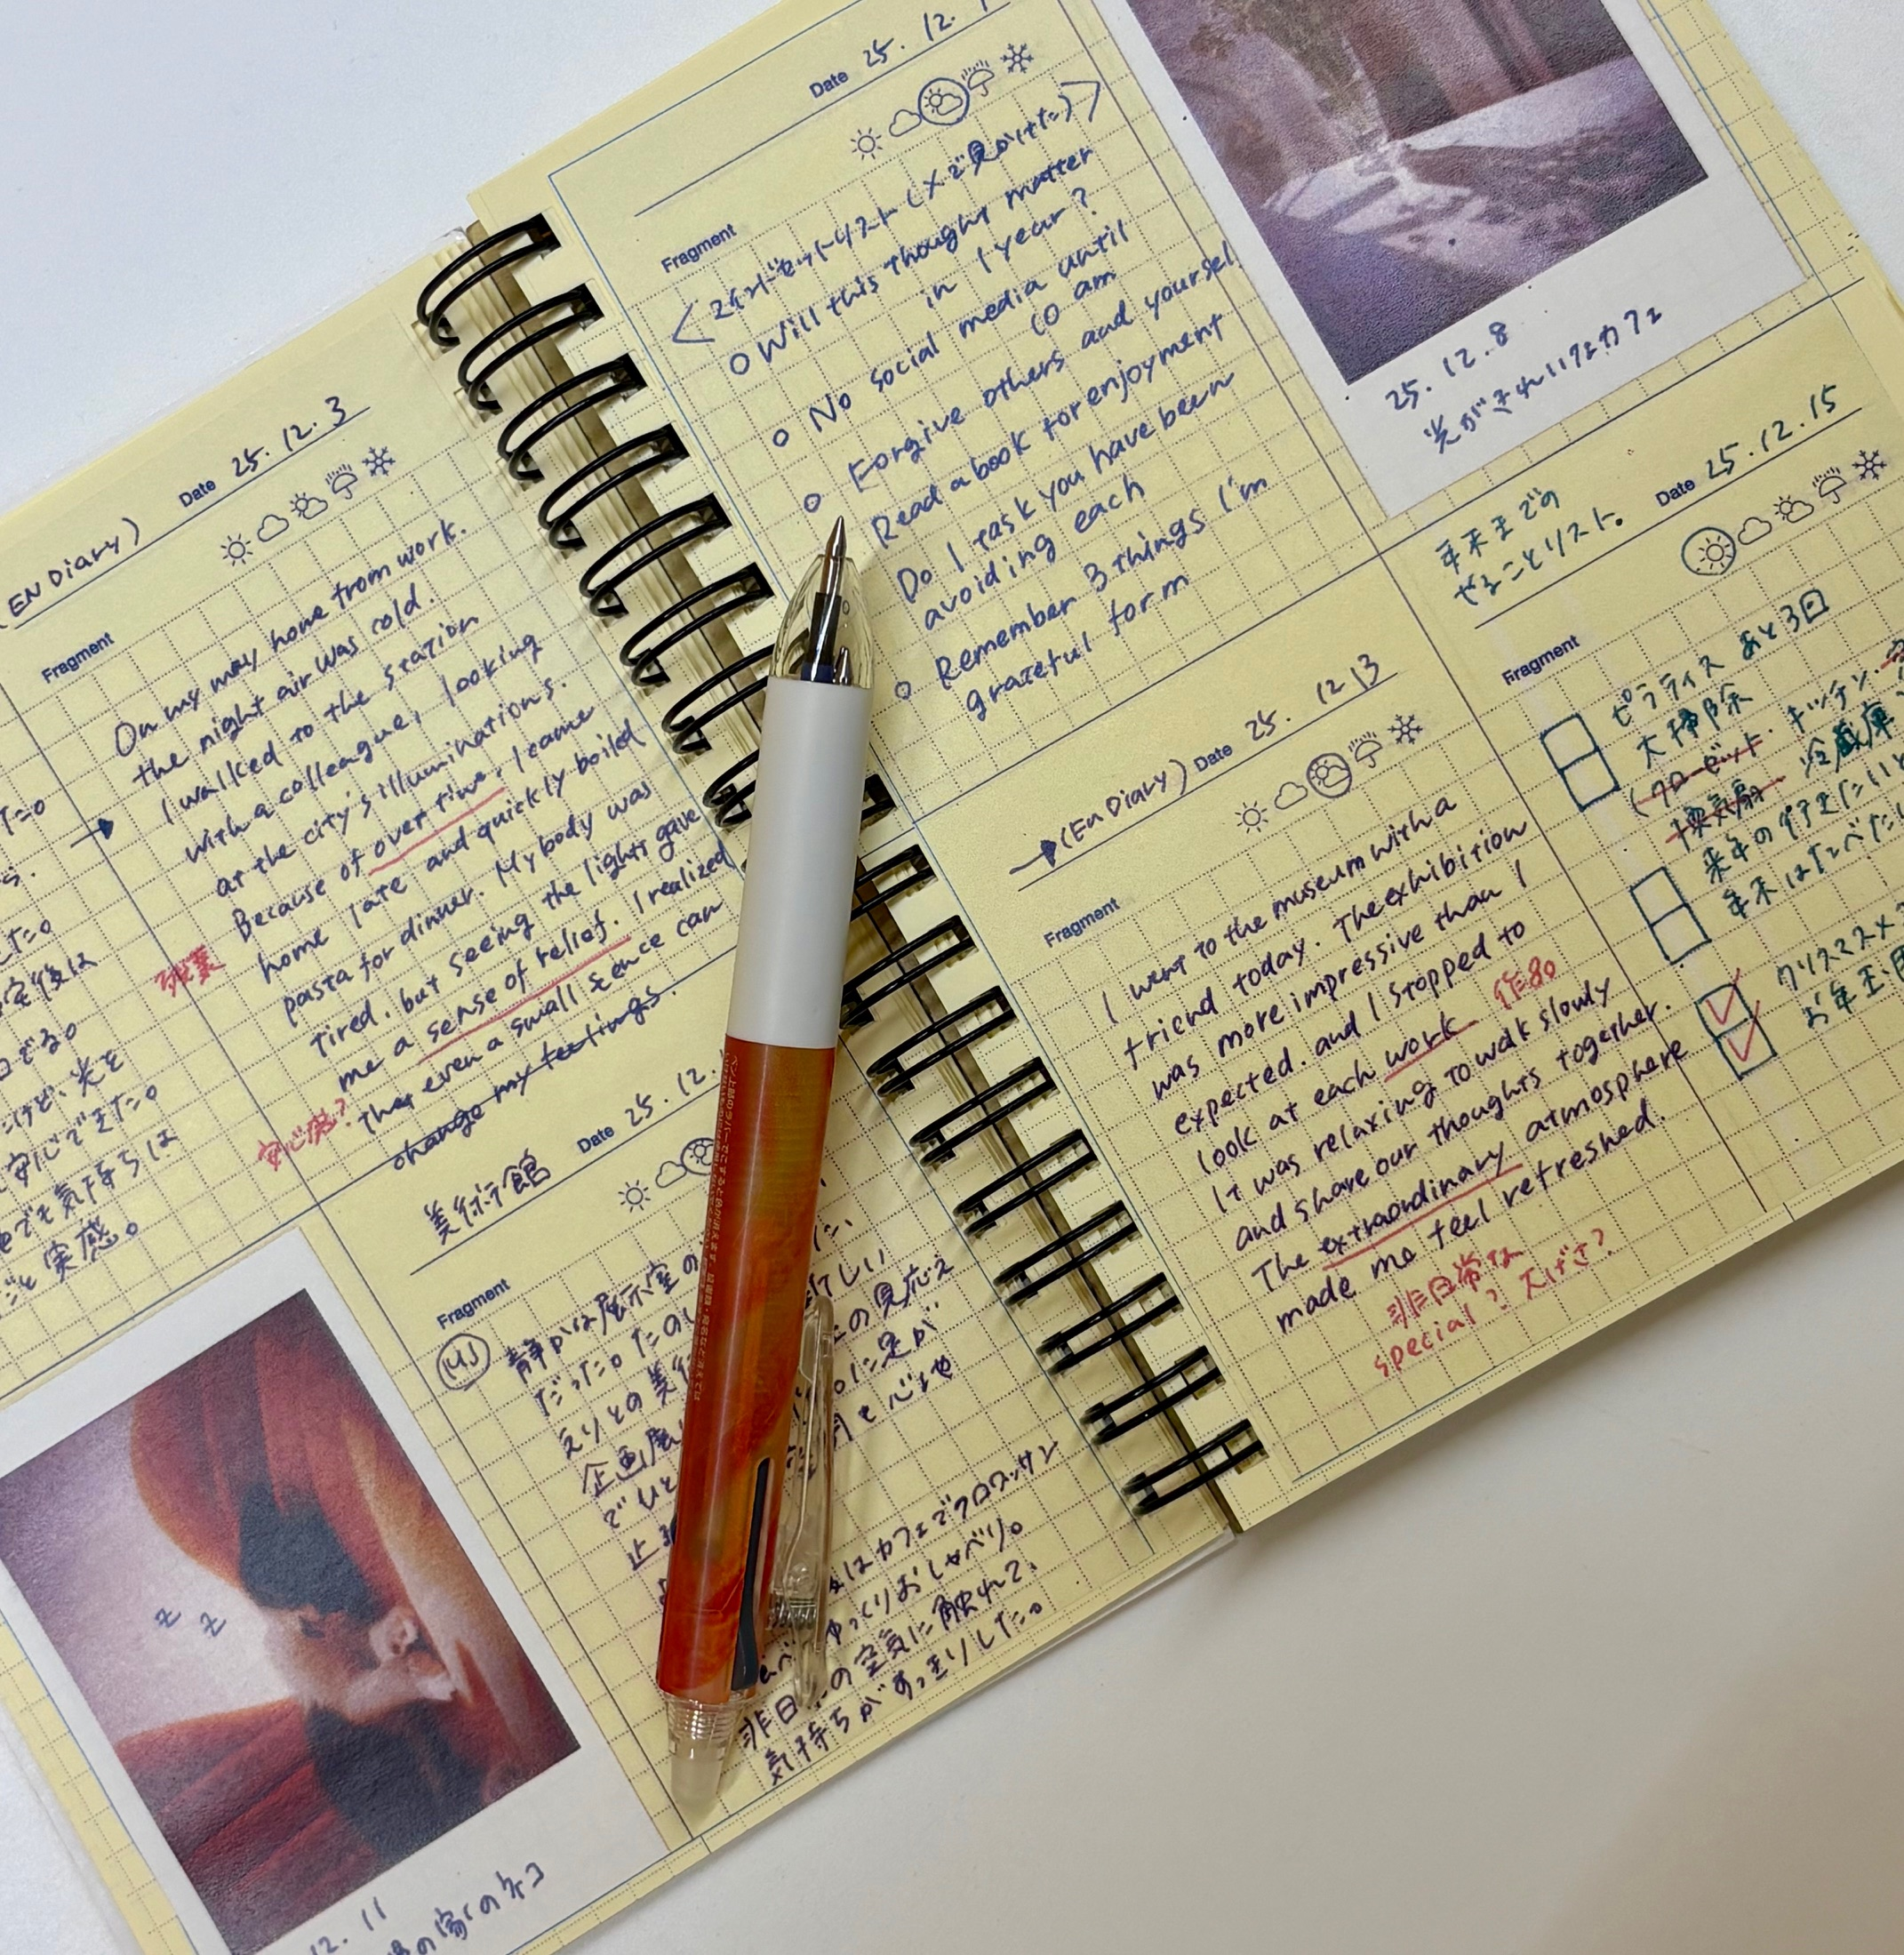 T=0
s.
した。
定後は
日でる。
けど、光を
安心できた。
でも気持ちは
ごと実感。
(EN Diary) Date 25. 12. 3
Fragment
On my way home from work.
the night air was cold.
I walked to the station
with a colleague, looking
at the city's illuminations.
Because of overtime, I came
home late and quickly boiled
残業
pasta for dinner. My body was
tired. but seeing the lights gave
me a sense of relief. I realized
安心感?
that even a small scence can
change my feelings.
12. 11
の家のネコ
z z
美術館 Date 25. 12.
Fragment
静かな展示室の
だった。たのし
えりとの美術
企画展
でひと
止ま
新しい
の見応え
に足が
心地
はカフェでクロワッサン
ゆっくりおしゃべり。
非日 の空気に触れて、
気持ちがすっきりした。
Date 25. 12. 1
Fragment
<マインドセットリスト(Xで見かけた)>
Will this thought matter
in 1 year?
No social media until
10 am
Forgive others and yoursel
Read a book for enjoyment
Do 1 task you have been
avoiding each
Remember 3 things I'm
grateful form
→ (En Diary) Date 25. 12 13
Fragment
I went to the museum with a
friend today. The exhibition
was more impressive than I
expected. and I stopped to
look at each work 作品
It was relaxing to walk slowly
and share our thoughts together.
The extraordinary atmosphere
made me feel refreshed.
非日常な
special? 大げさ?
25. 12. 8
光がきれいなカフェ
年末までの
やることリスト. Date 25. 12. 15
Fragment
ピラティス あと3回
大掃除
(クローゼット・キッチン・
換気扇 冷蔵庫
来年の行きたいと
年末はたべた
クリスマスメ
お年玉用